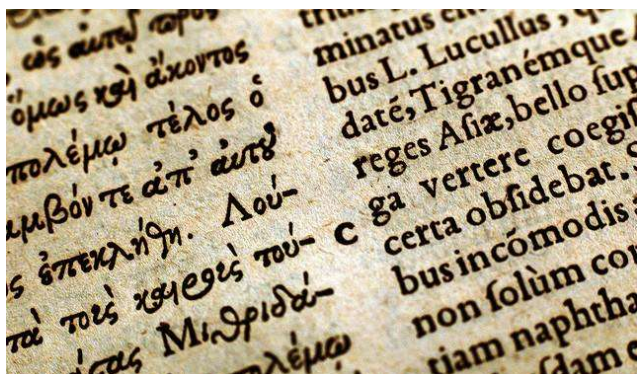 ὡς αὐτοῦ πρὸς
ὅμως καὶ ἄκοντος
πολέμῳ τέλος ὁ
αμβόν τε ἀπ' αὐτοῦ
ς ἐπεκλήθη. Λού-
τὰ τοὺς καιροὺς τού-
τας Μιθριδά-
πολέμῳ
trium
minatus
bus L. Lucullus, q
datē, Tigranémque
reges Asiæ, bello ſup
C ga vertere coegiſ
certa obſidebat.
bus incómodis
non ſolùm con
tiam naphtha
ſdam